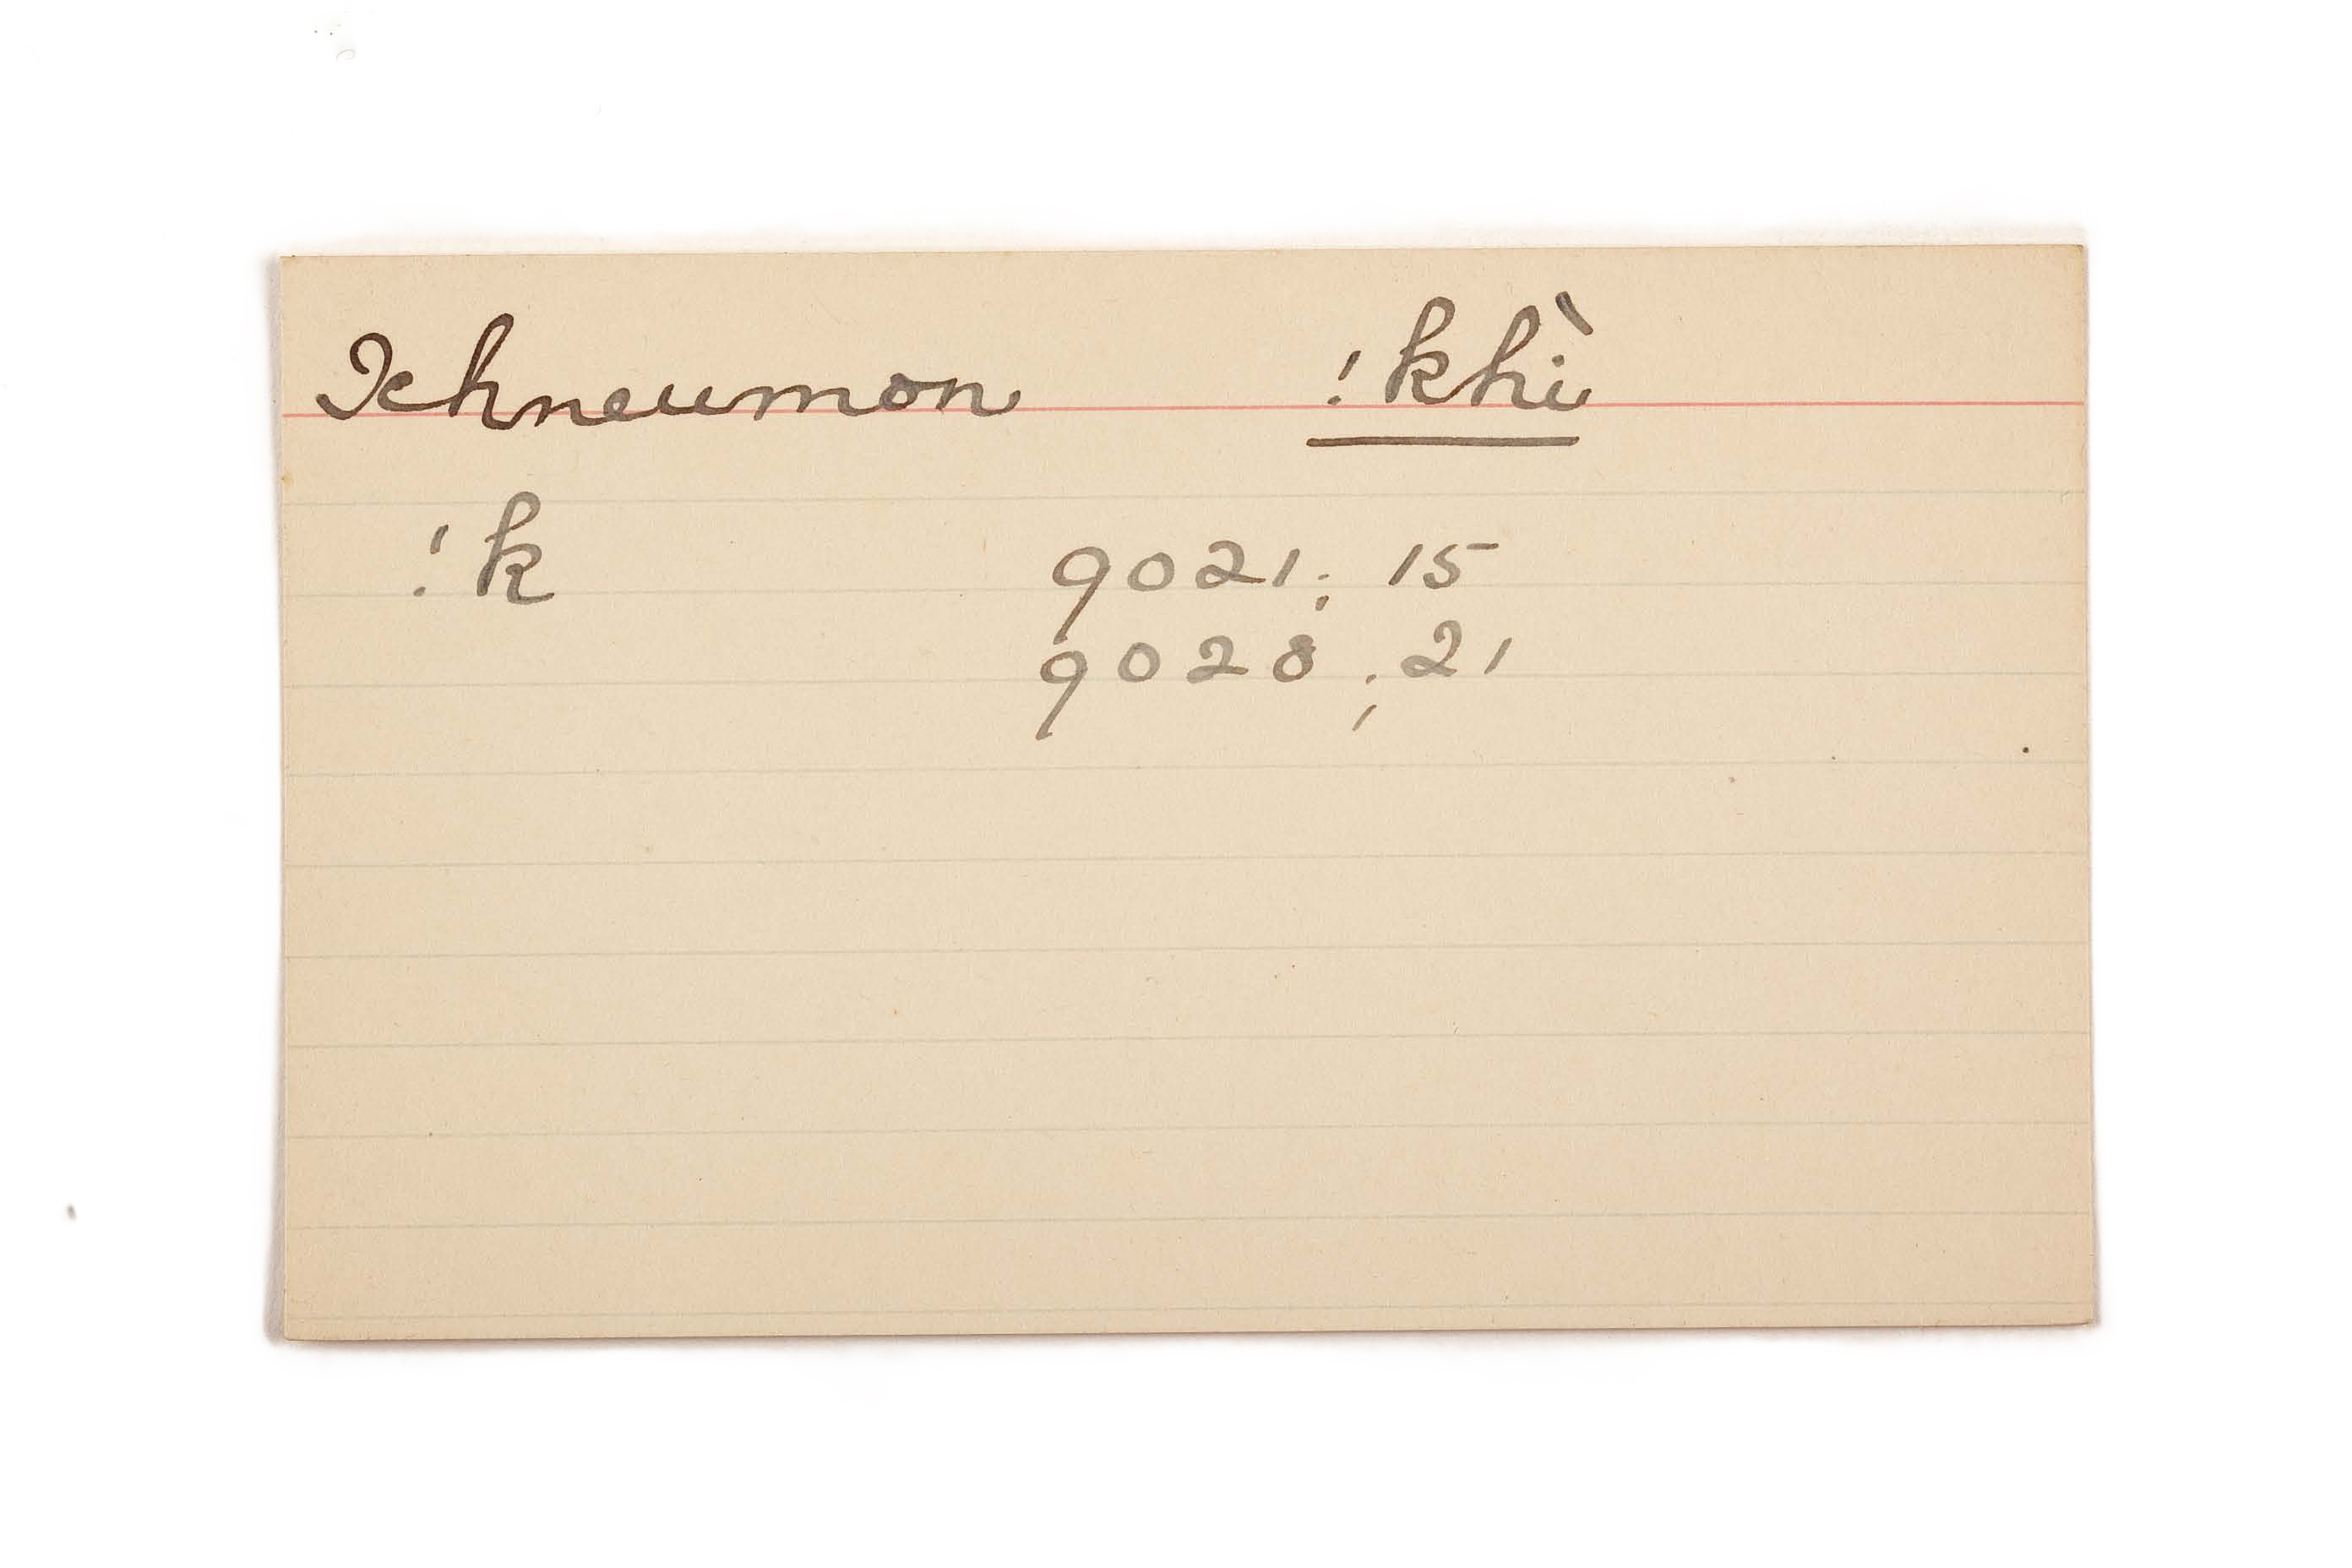 Ichneumon !khì
!k 9021; 15
9028; 21